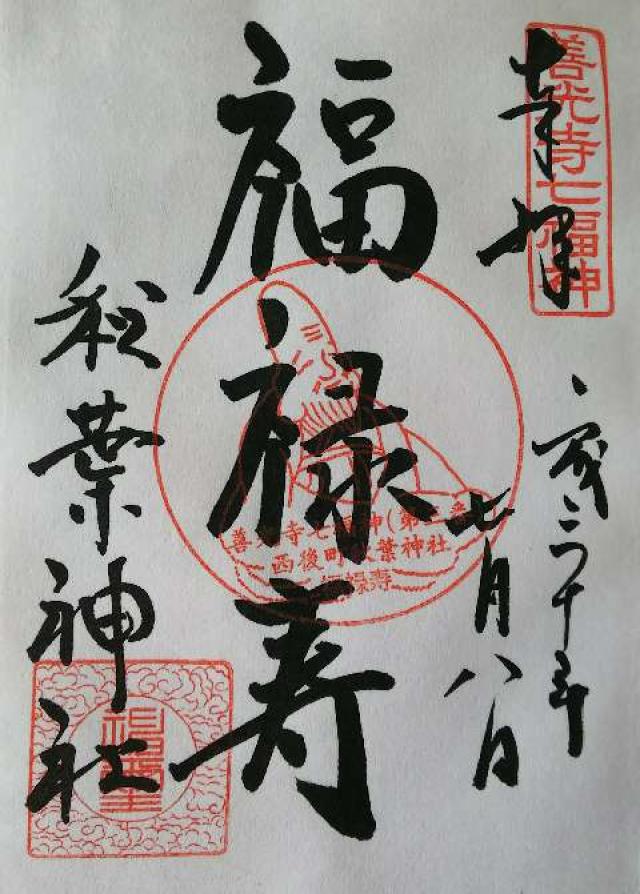 奉拝
善光寺七福神
平成三十年
七月八日
福禄寿
善光寺七福神(第三番)
西後町秋葉神社
福禄寿
秋葉神社